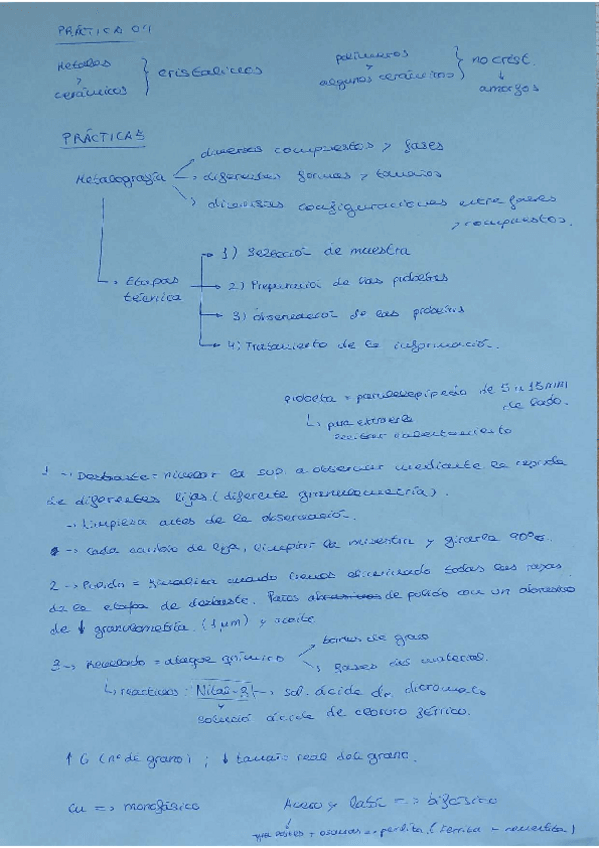 PRÁCTICA 04
Metales y cerámicos } cristalinos
polímeros y algunos cerámicos } no crist. ↓ amorfos
PRÁCTICAS
→ diversos compuestos y fases
Metalografía → diferentes formas y tamaños
→ distintas configuraciones entre fases
y compuestos.
→ 1) Selección de muestra
→ Etapas técnica → 2) Preparación de las probetas
→ 3) Observación de las probetas
→ 4) Tratamiento de la información.
probeta = paralelepípedo de 5 a 15 mm
de lado.
↳ para extraerla
evitar calentamiento
1 → Desbaste = nivelar la sup. a observar mediante la
de diferentes lijas (diferente granulometría).
→ Limpieza antes de la observación.
→ Cada cambio de lija, limpiar la muestra y girarla 90º.
2 → Pulido = finaliza cuando hemos eliminado todas las rayas
de la etapa de desbaste. Paños de pulido con un abrasivo
de ↓ granulometría (1 μm) y aceite
→ bordes de grano
3 → Revelado = ataque químico
→ fases del material.
↳ reactivos: Nital-3 → sol. ácida de dicromato
solució ácida de cloruro férrico.
↑ G (nº de grano) ; ↓ tamaño real del grano.
Cu => monofásico
Acero y latón => bifásico
+ oscuras = perlita (ferrita + cementita)